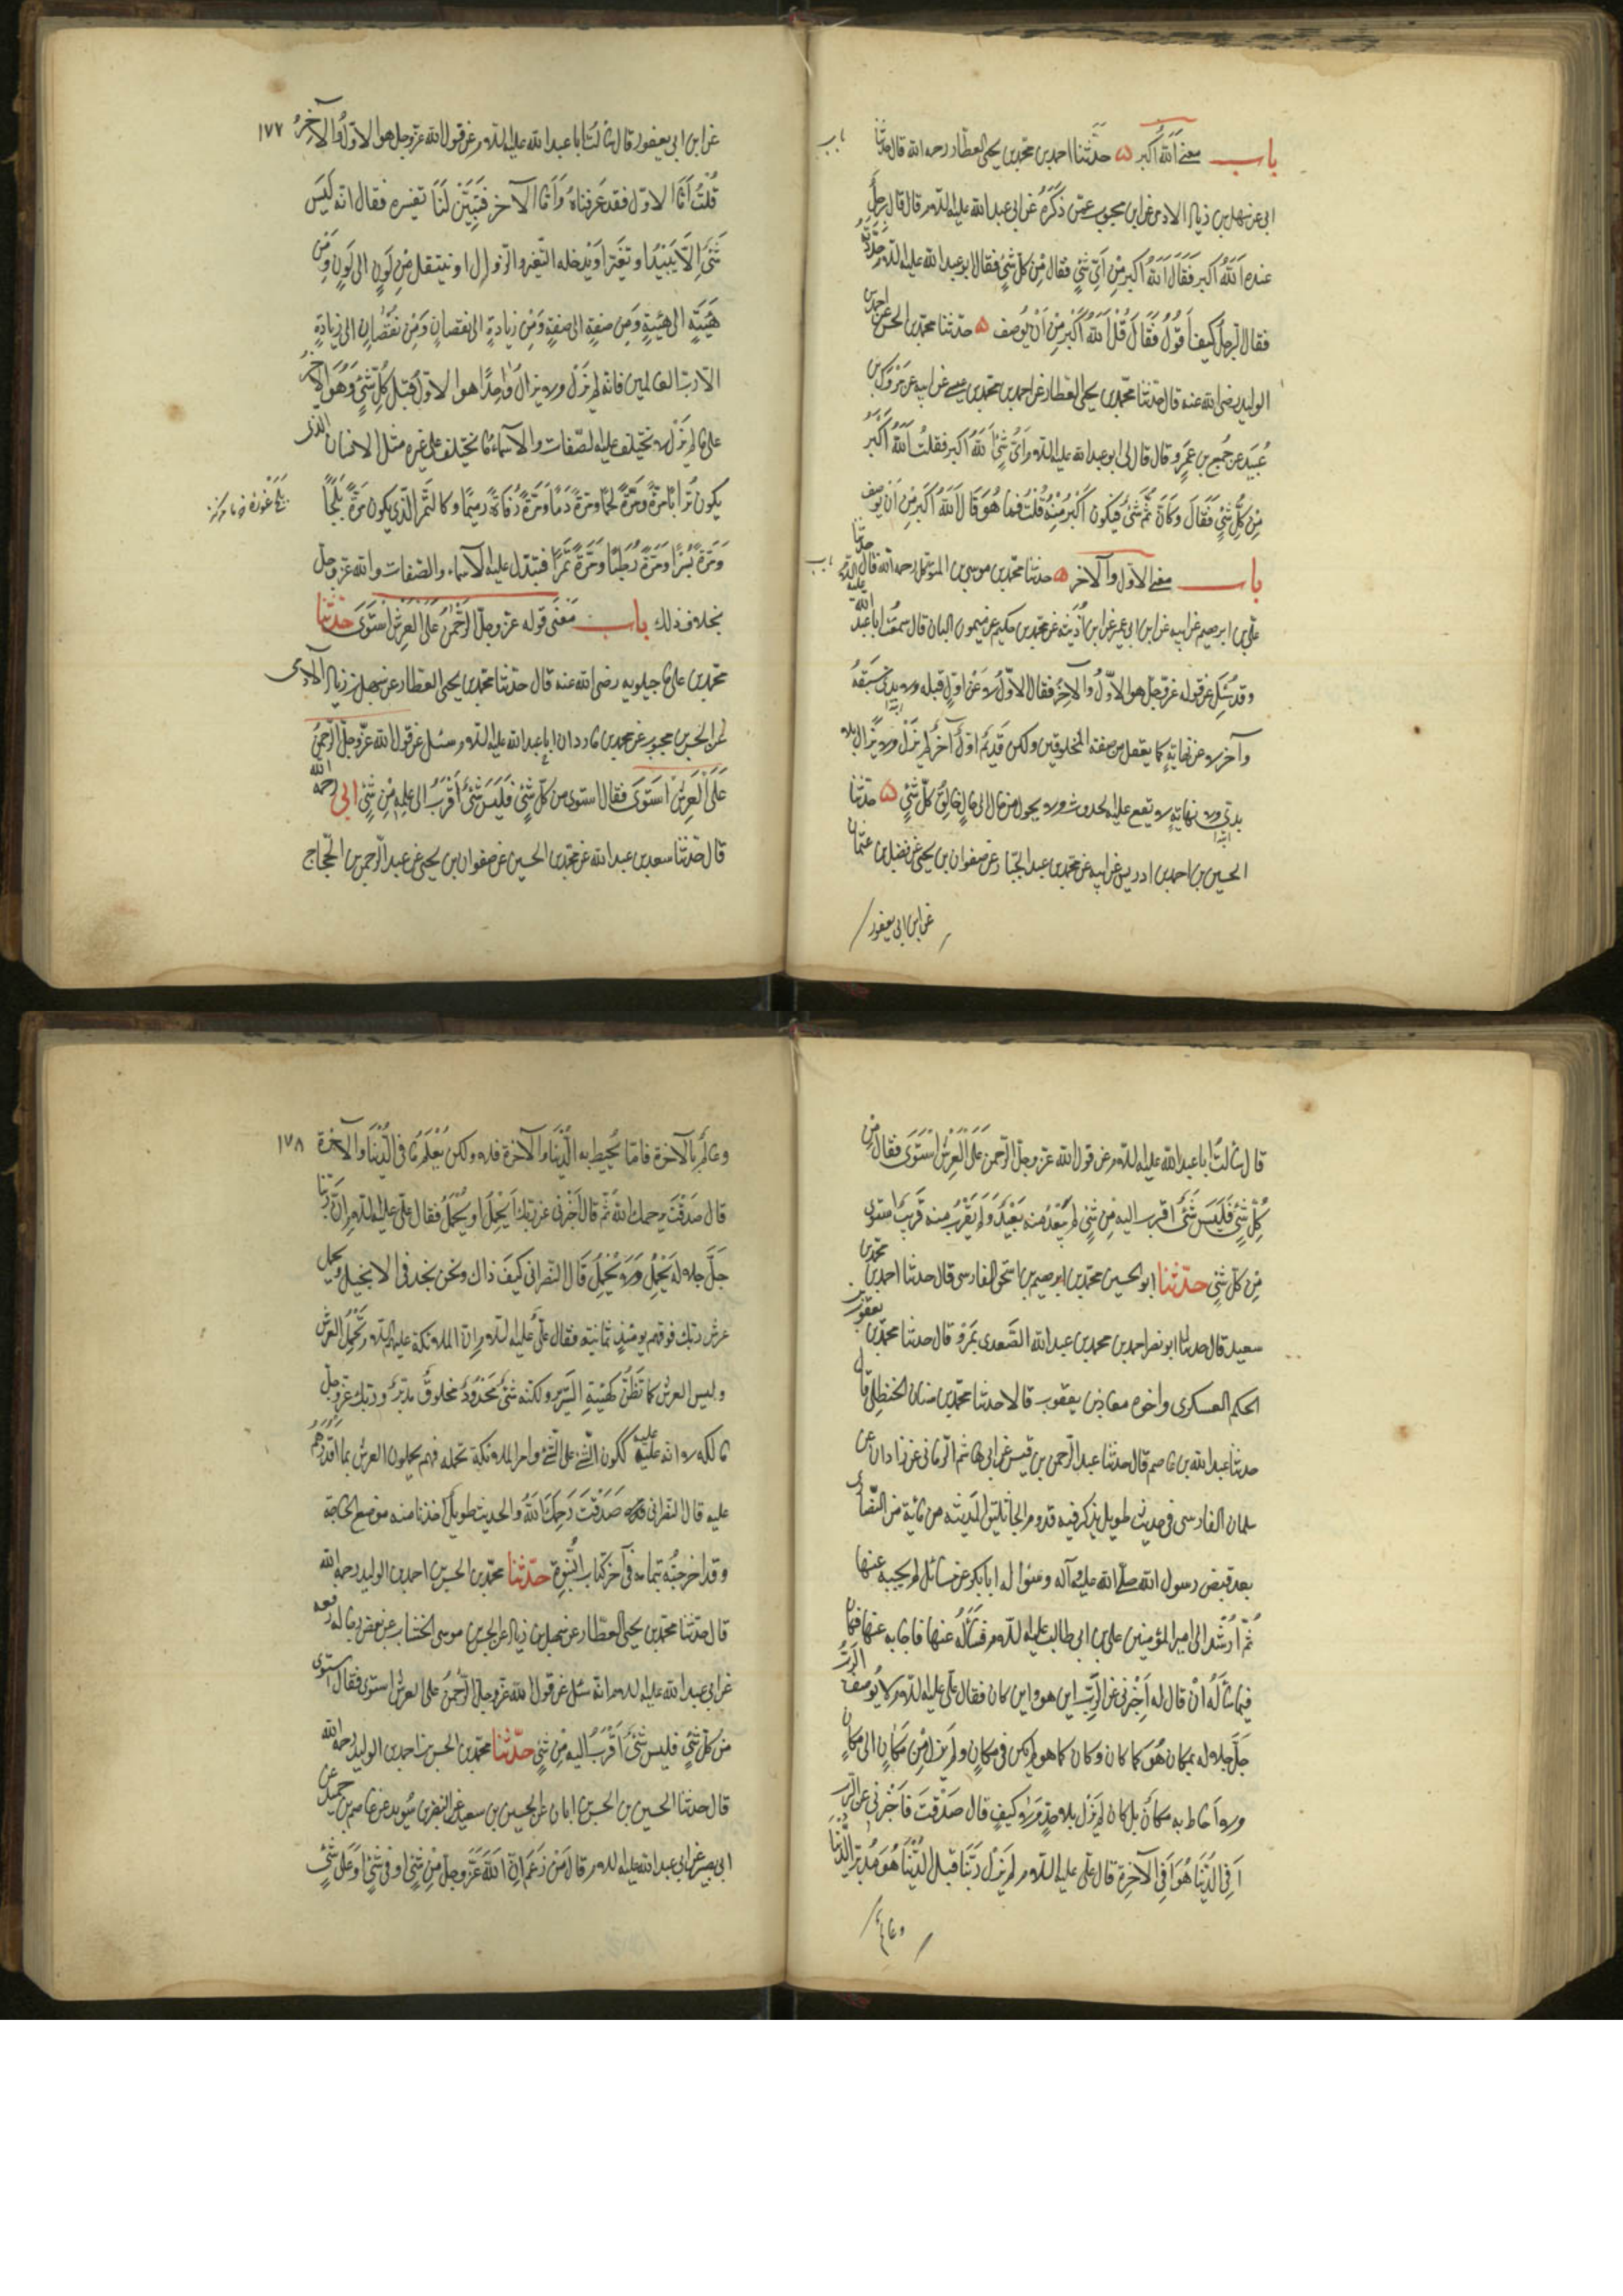 باب معنى الله أكبر حدثنا احمد بن محمد بن يحيى العطار رحمه الله قال حدثنا
ابى عن سهل بن زياد الادمى عن ابن محبوب عمن ذكره عن ابى عبد الله عليه السلام قال قال رجل
عنده الله اكبر فقال الله اكبر من اى شئ فقال من كل شئ فقال ابو عبد الله عليه السلام حددته
فقال الرجل كيف اقول فقال قل الله اكبر من ان يوصف حدثنا محمد بن الحسن بن احمد بن
الوليد رضى الله عنه قال حدثنا محمد بن يحيى العطار عن احمد بن محمد بن عيسى عن ابيه عن مروك بن
عبيد عن جميع بن عمرو قال قال لى ابو عبد الله عليه السلام اى شئ الله اكبر فقلت الله اكبر
من كل شئ فقال وكان ثم شئ فيكون اكبر منه قلت فما هو قال الله اكبر من ان يوصف
باب معنى الاول والآخر حدثنا محمد بن موسى بن المتوكل رحمه الله قال حدثنا
على بن ابرهيم عن ابيه عن ابن ابى عمير عن ابن اذينه عن محمد بن حكيم عن ميمون البان قال سمعت ابا عبد الله عليه السلام
وقد سئل عن قوله عز وجل هو الاول والآخر فقال الاول لا عن اول قبله ولا عن بدئ سبقه
وآخر لا عن نهاية كما يعقل من صفة المخلوقين ولكن قديم اول آخر لم يزل ولا يزال بلا
بدئ ولا نهاية لا يقع عليه الحدوث ولا يحول من حال الى حال خالق كل شئ حدثنا
الحسين بن احمد بن ادريس عن ابيه عن محمد بن عبد الجبار عن صفوان بن يحيى عن فضيل بن عثمان
عن ابن ابى يعفور
١٧٧
عن ابن ابى يعفور قال سألت ابا عبد الله عليه السلام عن قول الله عز وجل هو الاول والآخر
قلت اما الاول فقد عرفناه واما الآخر فبين لنا تفسيره فقال انه ليس
شئ الا يبيد او يتغير او يدخله التغير والزوال او ينتقل من لون الى لون ومن
هيئة الى هيئة ومن صفة الى صفة ومن زيادة الى نقصان ومن نقصان الى زيادة
الا رب العالمين فانه لم يزل ولا يزال واحدا هو الاول قبل كل شئ وهو الآخر
على ما لم يزل لا تختلف عليه الصفات والاسماء كما تختلف على غيره مثل الانسان الذى
يكون ترابا مرة ومرة لحما ومرة دما ومرة رفاتا ورميما وكالتمر الذى يكون مرة بلحا
ومرة بسرا ومرة رطبا ومرة تمرا فتبدل عليه الاسماء والصفات والله عز وجل
بخلاف ذلك باب معنى قوله عز وجل الرحمن على العرش استوى حدثنا
محمد بن على ماجيلويه رضى الله عنه قال حدثنا محمد بن يحيى العطار عن سهل بن زياد الآدمى
عن الحسن بن محبوب عن محمد بن مارد ان ابا عبد الله عليه السلام سئل عن قول الله عز وجل الرحمن
على العرش استوى فقال استوى من كل شئ فليس شئ أقرب اليه من شئ ابى رحمه الله
قال حدثنا سعد بن عبد الله عن محمد بن الحسين عن صفوان بن يحيى عن عبد الرحمن بن الحجاج
قال سألت ابا عبد الله عليه السلام عن قول الله عز وجل الرحمن على العرش استوى فقال من
كل شئ فليس شئ اقرب اليه من شئ لم يبعد منه بعيد ولم يقرب منه قريب استوى
من كل شئ حدثنا ابو الحسين محمد بن ابرهيم بن اسحق الفارسى قال حدثنا احمد بن محمد بن
سعيد قال حدثنا ابو نصر احمد بن محمد بن عبد الله الصغدى بمرو قال حدثنا محمد بن يعقوب بن
الحكم العسكرى واخوه معاذ بن يعقوب قالا حدثنا محمد بن سنان الحنظلى قال
حدثنا عبد الله بن عاصم قال حدثنا عبد الرحمن بن قيس عن ابى هاشم الرمانى عن زاذان عن
سلمان الفارسى فى حديث طويل يذكر فيه قدوم الجاثليق المدينة مع مائة من النصارى
بعد قبض رسول الله صلى الله عليه وآله وسؤاله ابا بكر عن مسائل لم يجبه عنها
ثم ارشد الى امير المؤمنين على بن ابى طالب عليه السلام فسأله عنها فاجابه عنها فكان
فيما سأله ان قال له اخبرنى عن الرب اين هو واين كان فقال على عليه السلام لا يوصف الرب
جل جلاله بمكان هو كما كان وكان كما هو لم يكن فى مكان ولم يزل من مكان الى مكان
ولا احاط به مكان بل كان لم يزل بلا حد ولا كيف قال صدقت فاخبرنى عن الرب
افى الدنيا هو او فى الآخرة قال على عليه السلام لم يزل ربنا قبل الدنيا هو مدبر الدنيا
وعالم
١٧٨
وعالم بالآخرة فاما ان يحيط به الدنيا والآخرة فلا ولكن يعلم ما فى الدنيا والآخرة
قال صدقت يرحمك الله ثم قال اخبرنى عن ربك ايحمل او يحمل فقال على عليه السلام ان ربنا
جل جلاله يحمل ولا يحمل قال النصرانى كيف ذاك ونحن نجد فى الانجيل ويحمل
عرش ربك فوقهم يومئذ ثمانية فقال على عليه السلام ان الملائكة عليهم السلام تحمل العرش
وليس العرش كما تظن كهيئة السرير ولكنه شئ محدود مخلوق مدبر وربك عز وجل
مالكه لا انه عليه ككون الشئ على الشئ وامر الملائكة تحمله فهم يحملون العرش بما اقدرهم
عليه قال النصرانى صدقت رحمك الله والحديث طويل اخذنا منه موضع الحاجة
وقد اخرجته بتمامه فى آخر كتاب النبوة حدثنا محمد بن الحسن بن احمد بن الوليد رحمه الله
قال حدثنا محمد بن يحيى العطار عن سهل بن زياد عن الحسن بن موسى الخشاب عن بعض رجاله رفعه
عن ابى عبد الله عليه السلام انه سئل عن قول الله عز وجل الرحمن على العرش استوى فقال استوى
من كل شئ فليس شئ اقرب اليه من شئ حدثنا محمد بن الحسن بن احمد بن الوليد رحمه الله
قال حدثنا الحسين بن الحسن بن ابان عن الحسين بن سعيد عن النضر بن سويد عن عاصم بن حميد عن
ابى بصير عن ابى عبد الله عليه السلام قال من زعم ان الله عز وجل من شئ او فى شئ او على شئ